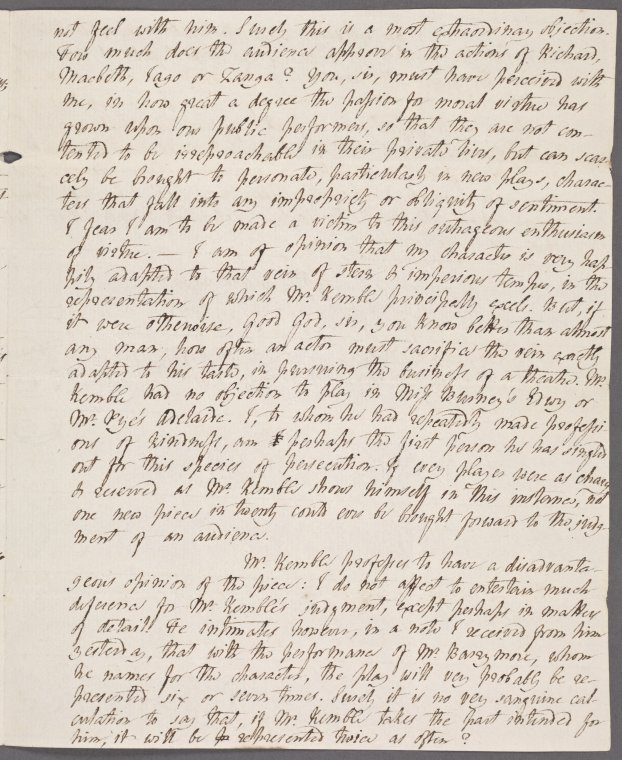 not feel with him. Surely this is a most extraordinary objection.
How much does the audience approve in the actions of Richard,
Macbeth, Iago or Zanga? You, sir, must have perceived with
me, in how great a degree the passion for moral virtue has
grown upon our public performers, so that they are not con-
tented to be irreproachable in their private lives, but can scar-
cely be brought to personate, particularly in new plays, charac-
ters that fall into any impropriety or obliquity of sentiment.
I fear I am to be made a victim to this outrageous enthusiasm
of virtue. — I am of opinion that my character is very hap-
pily adapted to that vein of stern & imperious temper, in the
representation of which Mr. Kemble principally excels. But, if
it were otherwise, Good God, sir, you know better than almost
any man, how often an actor must sacrifice the vein exactly
adapted to his taste, in pursuing the business of a theatre. Mr.
Kemble had no objection to play in Miss Burney's Edwy or
Mr. Pye's Adelaide. I, to whom he had repeatedly made professi-
ons of kindness, am perhaps the first person he has singled
out for this species of persecution. If every player were as chary
& reserved as Mr. Kemble shows himself in this instance, not
one new piece in twenty could ever be brought forward to the judg-
ment of an audience.
Mr. Kemble professes to have a disadvanta-
geous opinion of the piece: I do not affect to entertain much
deference for Mr. Kemble's judgment, except perhaps in matters
of detail. He intimates however, in a note I received from him
yesterday, that with the performance of Mr. Barrymore, whom
he names for the character, the play will very probably be re-
presented six or seven times. Surely it is no very sanguine cal-
culation to say that, if Mr. Kemble takes the part intended for
him, it will be represented twice as often?